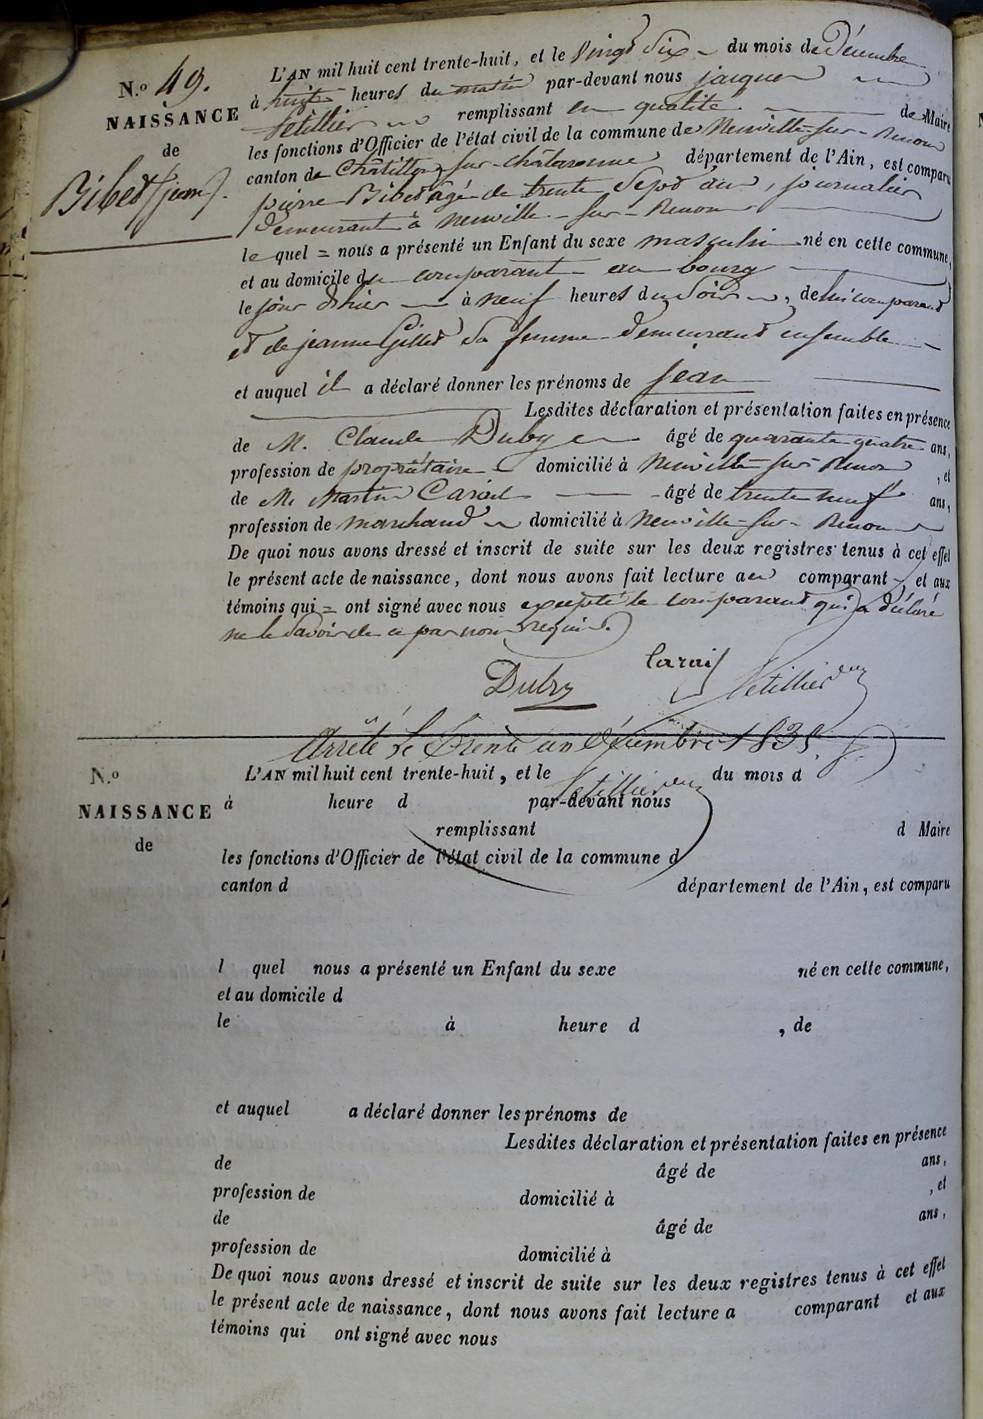 N.º 49.
NAISSANCE
de
Bibet (jean).
L'AN mil huit cent trente-huit, et le vingt Six du mois de Décembre
à huit heures du matin par-devant nous jacques
Letillier remplissant en qualité de Maire
les fonctions d'Officier de l'état civil de la commune de Neuville-sur-Renom
canton de Châtillon-sur-Chalaronne département de l'Ain, est comparu
pierre Bibet âgé de trente Sept ans, journalier
demeurant à Neuville-sur-Renom
le quel = nous a présenté un Enfant du sexe masculin né en cette commune,
et au domicile du comparant au bourg
le jour d'hier à neuf heures du Soir, de lui comparant
et de jeanne Gillet sa femme demeurant ensemble
et auquel il a déclaré donner les prénoms de jean
Lesdites déclaration et présentation faites en présence
de M. Claude Duby âgé de quarante quatre ans,
profession de propriétaire domicilié à Neuville-sur-Renom, et
de M. Martin Carail âgé de trente neuf ans,
profession de marchand domicilié à Neuville-sur-Renom
De quoi nous avons dressé et inscrit de suite sur les deux registres tenus à cet effet
le présent acte de naissance, dont nous avons fait lecture au comparant, et aux
témoins qui = ont signé avec nous excepté le comparant qui a déclaré
ne le Savoir de ce par nous requis.
Duby Letillier
Arrêté le Trente un Décembre 1838.
Letillier
N.º
NAISSANCE
de
L'AN mil huit cent trente-huit, et le du mois d
à heure d par-devant nous
remplissant d Maire
les fonctions d'Officier de l'état civil de la commune d
canton d département de l'Ain, est comparu
l quel nous a présenté un Enfant du sexe né en cette commune,
et au domicile d
le à heure d , de
et auquel a déclaré donner les prénoms de
Lesdites déclaration et présentation faites en présence
de âgé de ans,
profession de domicilié à , et
de âgé de ans,
profession de domicilié à
De quoi nous avons dressé et inscrit de suite sur les deux registres tenus à cet effet
le présent acte de naissance, dont nous avons fait lecture a comparant et aux
témoins qui ont signé avec nous